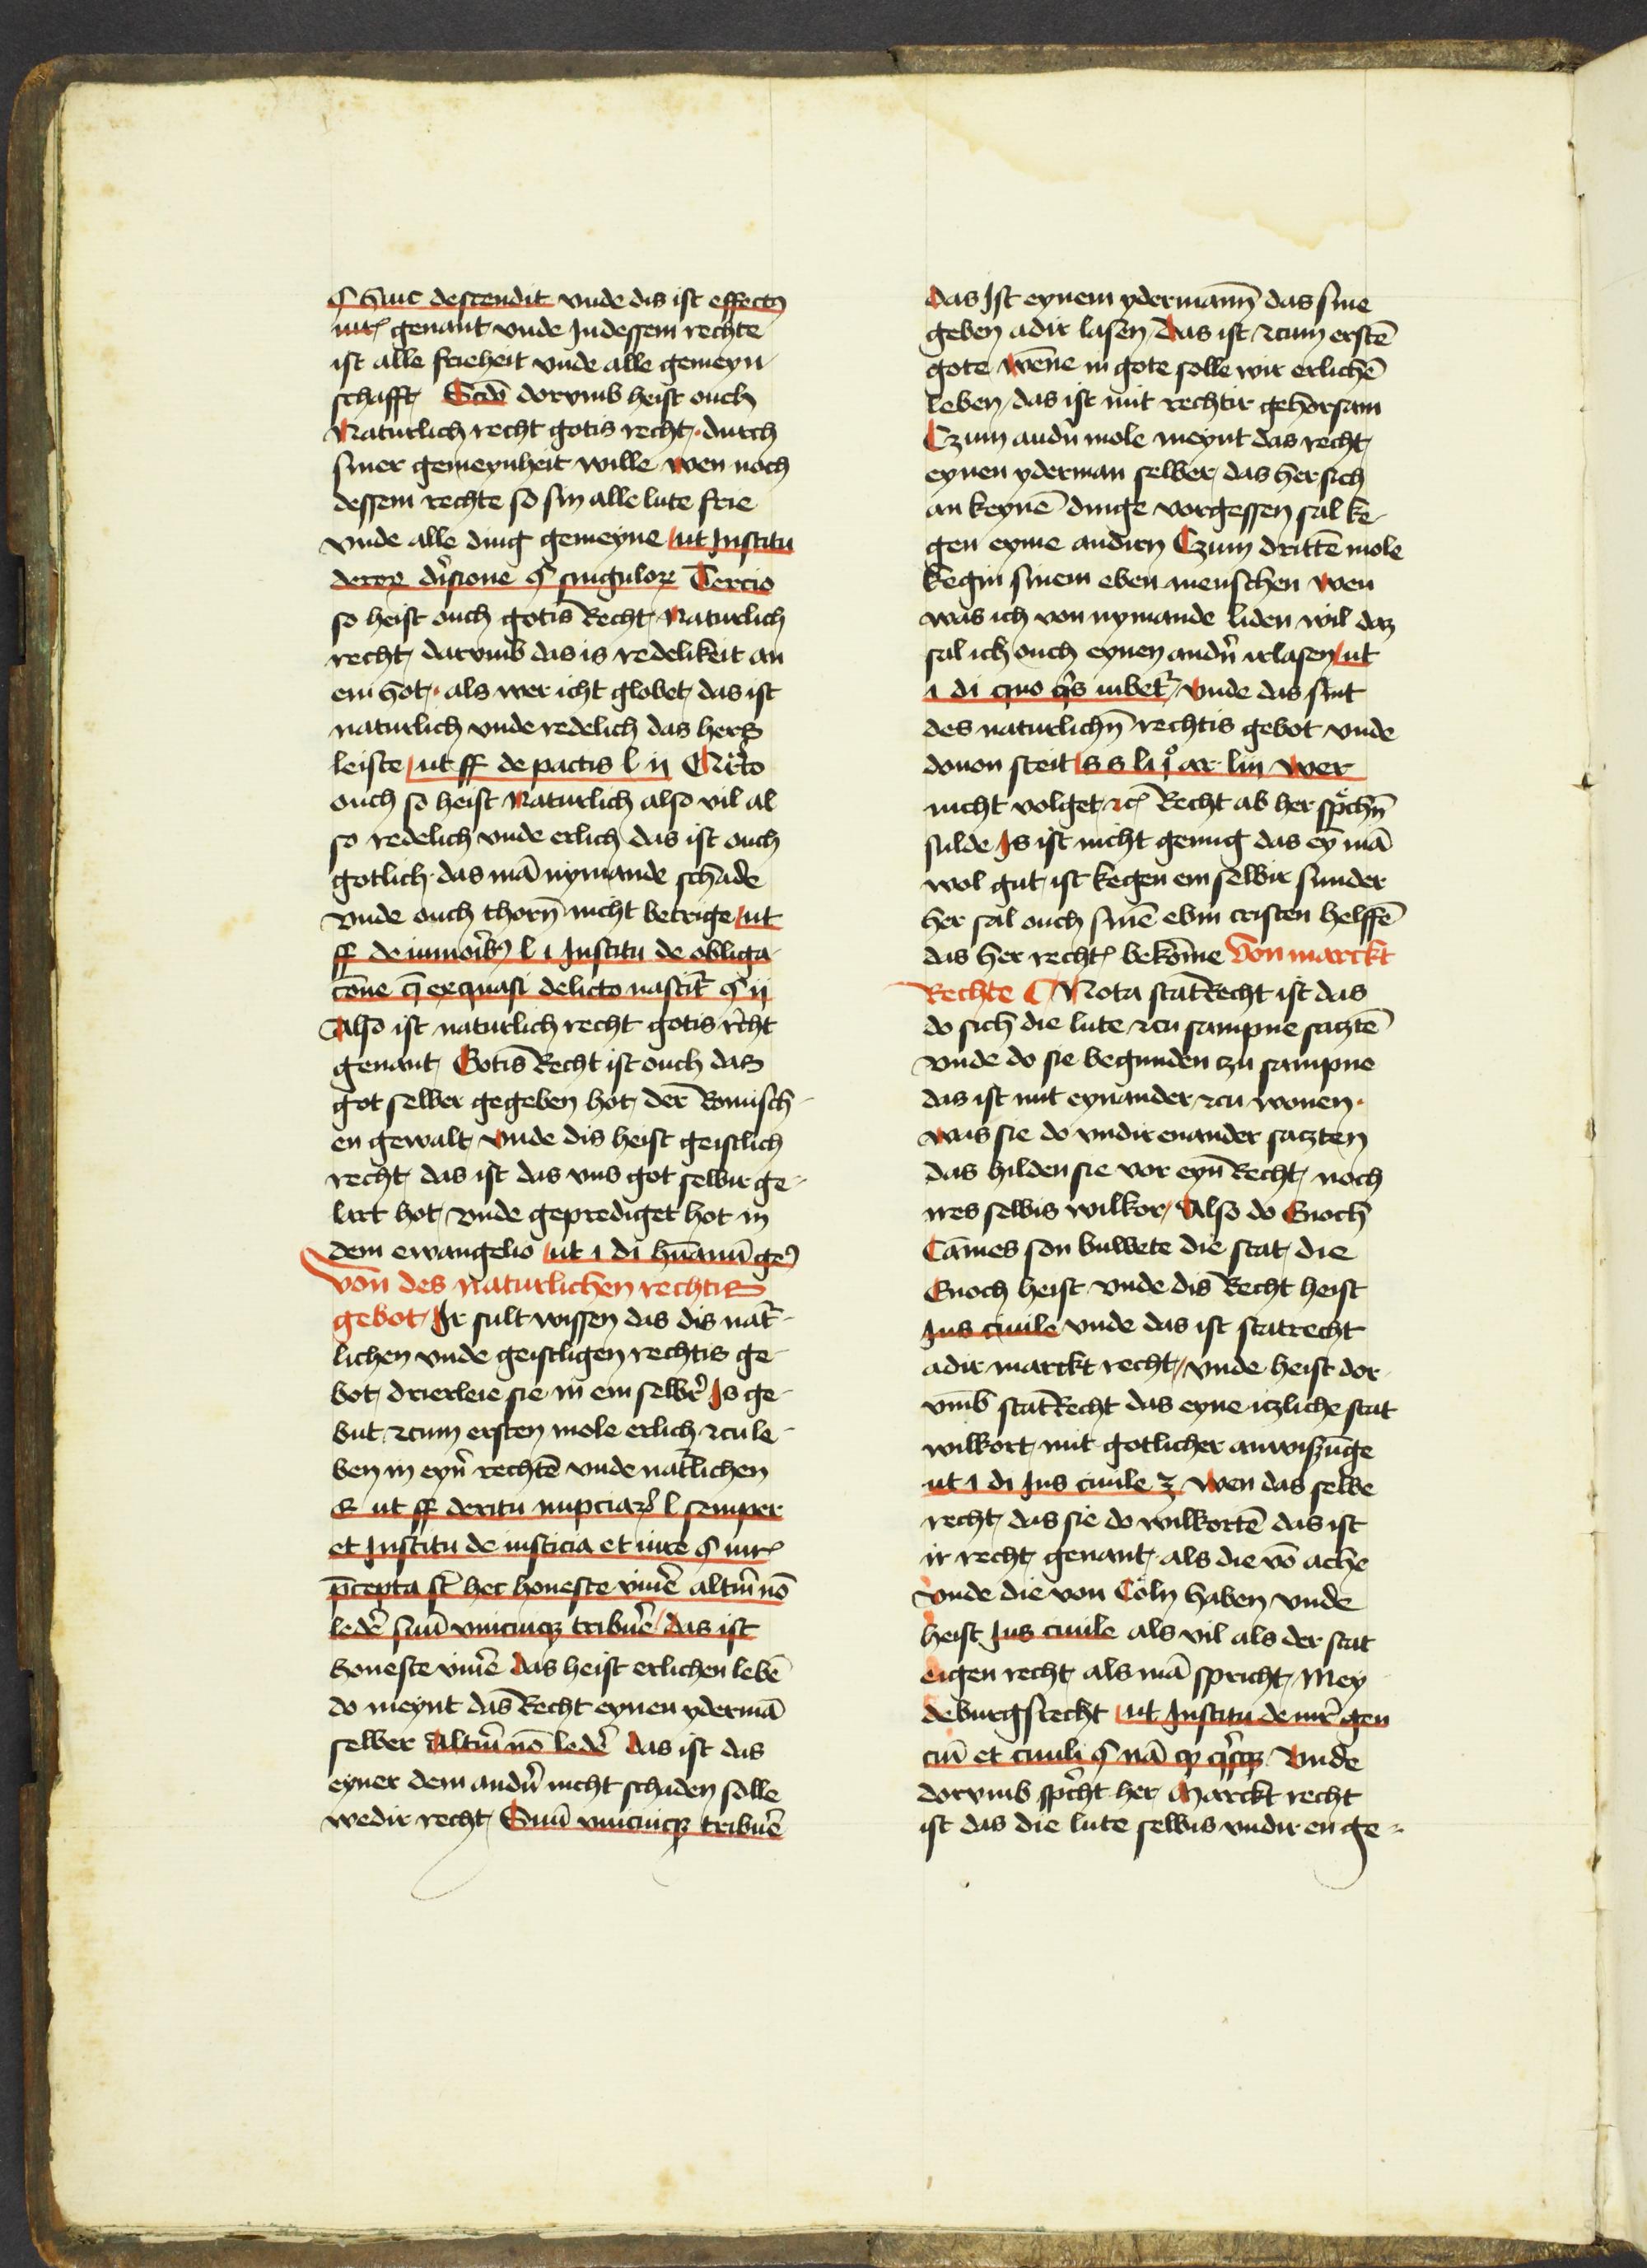 § huic descendit vnde dis ist effectꝰ
iurꝭ genant vnde Jndessem rechte
ist alle frieheit vnde alle gemeyn
schafft Scdō dorvmb heist ouch
Naturlich recht gotis recht durch
siner gemeynheit wille wen noch
dessem rechte so sin alle lute frie
vnde alle ding gemeyne ut Jnstitu
dereꝝ diͧsione § singuloꝝ Tercio
so heist ouch gotis Recht Naturlich
recht darvmb das is redelikeit an
em hot als wer icht globet das ist
naturlich vnde redelich das hers
leiste ut ff de pactis l ij Qrͣto
ouch so heist Naturlich also vil al
so redelich vnde erlich das ist ouch
gotlich das mā nymande schade
vnde ouch thorn̄ nicht betrige ut
ff de minoribꝰ l i Jnstitu de obliga
cōne q̄ ex quasi delicto nascit᷑ § ij
Also ist naturlich recht gotis rͤcht
genant Gotis Recht ist ouch das
got selber gegeben hot der Romisch
en gewalt vnde dis heist geistlich
recht das ist das vns got selbir ge
lart hot vnde geprediget hot in
dem ewangelio ut i di hūanū geꝰ
von des naturlichen rechtis
gebot Jr sult wissen das dis nat᷑
lichen vnde geistligen rechtis ge
bot drierleie sie in em selbr̄ Js ge
but zcum ersten mole erlich zcu le
ben in eyn̄ rechtē vnde nat᷑lichen
E ut ff de ritu nupciaꝝ l semper
et Jnstitu de iusticia et iure § iurꝭ
p̄cepta st̄ hec honeste viuē altm̄ nō
ledē suū vnicuiqꝫ tribuē das ist
honeste viuē das heist erlichen lebē
do meynt das Recht eynen ydermā
selber Altm̄ nō ledē Das ist das
eyner dem andn̄ nicht schaden solle
wedir recht Suū vnicuiqꝫ tribuē
das Jst eynem ydermann̄ das sine
geben adir lasen das ist zcum erstē
gote wēne in gote solle wir erlichē
leben das ist mit rechtir gehorsam
Czum andn̄ mole meynt das recht
eynen yderman selber das her sich
an keynē dinge vorgessen sal ke
gen eyme andirn Czum drittē mole
kegin sinem eben menschen wen
was ich von nymande liden wil daz
sal ich ouch eynen andn̄ irlasen ut
i di quo qͥs iubet᷑ vnde das sint
des naturlichn̄ rechtis gebot vnde
douon steit s s li jͦ ar liij wer
nicht volget ⁊cꝭ Recht ab her spͤchn̄
sulde Js ist nicht genug das ey mā
wol gut ist kegen em selbir sunder
her sal ouch sinē ebin cristen helffē
das her rechtꝭ bekōme Von marckt
Rechte Nota stat Recht ist das
do sich die lute zcu sampne saztē
vnde do sie begunden zu sampne
das ist mit eynander zcu wonen
was sie do vndir enander sazten
das hilden sie vor eyn Recht noch
ires selbis wilkor Also do Enoch
Cāines son buwete die stat die
Enoch heist vnde dis Recht heist
Jus ciuile vnde das ist statrecht
adir marckt recht vnde heist dor
vmb stat Recht das eyne itzliche stat
wilkort mit gotlicher anwiszūge
ut i di Jus ciuile ꝫ Wen das selbe
recht das sie do wilkortē das ist
ir recht genant als die vō ache
vnde die von Cöln haben vnde
heist Jus ciuile als vil als der stat
eigen recht als mā spricht Mey
deburgs recht ut Jnstitu de iur̄ gen
ciū et ciuili § nā qꝫ
Vnde
dorvmb spͥcht her Marckt recht
ist das die lute selbis vndir en ge